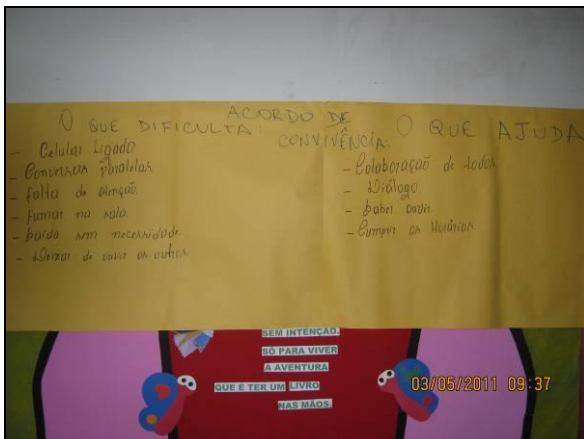 ACORDO DE
CONVIVÊNCIA:
O QUE DIFICULTA:
- Celular Ligado
- Conversas paralelas
- falta de atenção
- fumar na sala
- Saída sem necessidade
- Deixar de ouvir os outros
O QUE AJUDA
- Colaboração de todos
- Diálogo
- Saber ouvir
- Cumprir os Horários
SEM INTENÇÃO.
SÓ PARA VIVER
A AVENTURA
QUE É TER UM LIVRO
NAS MÃOS.
03/05/2011 09:37